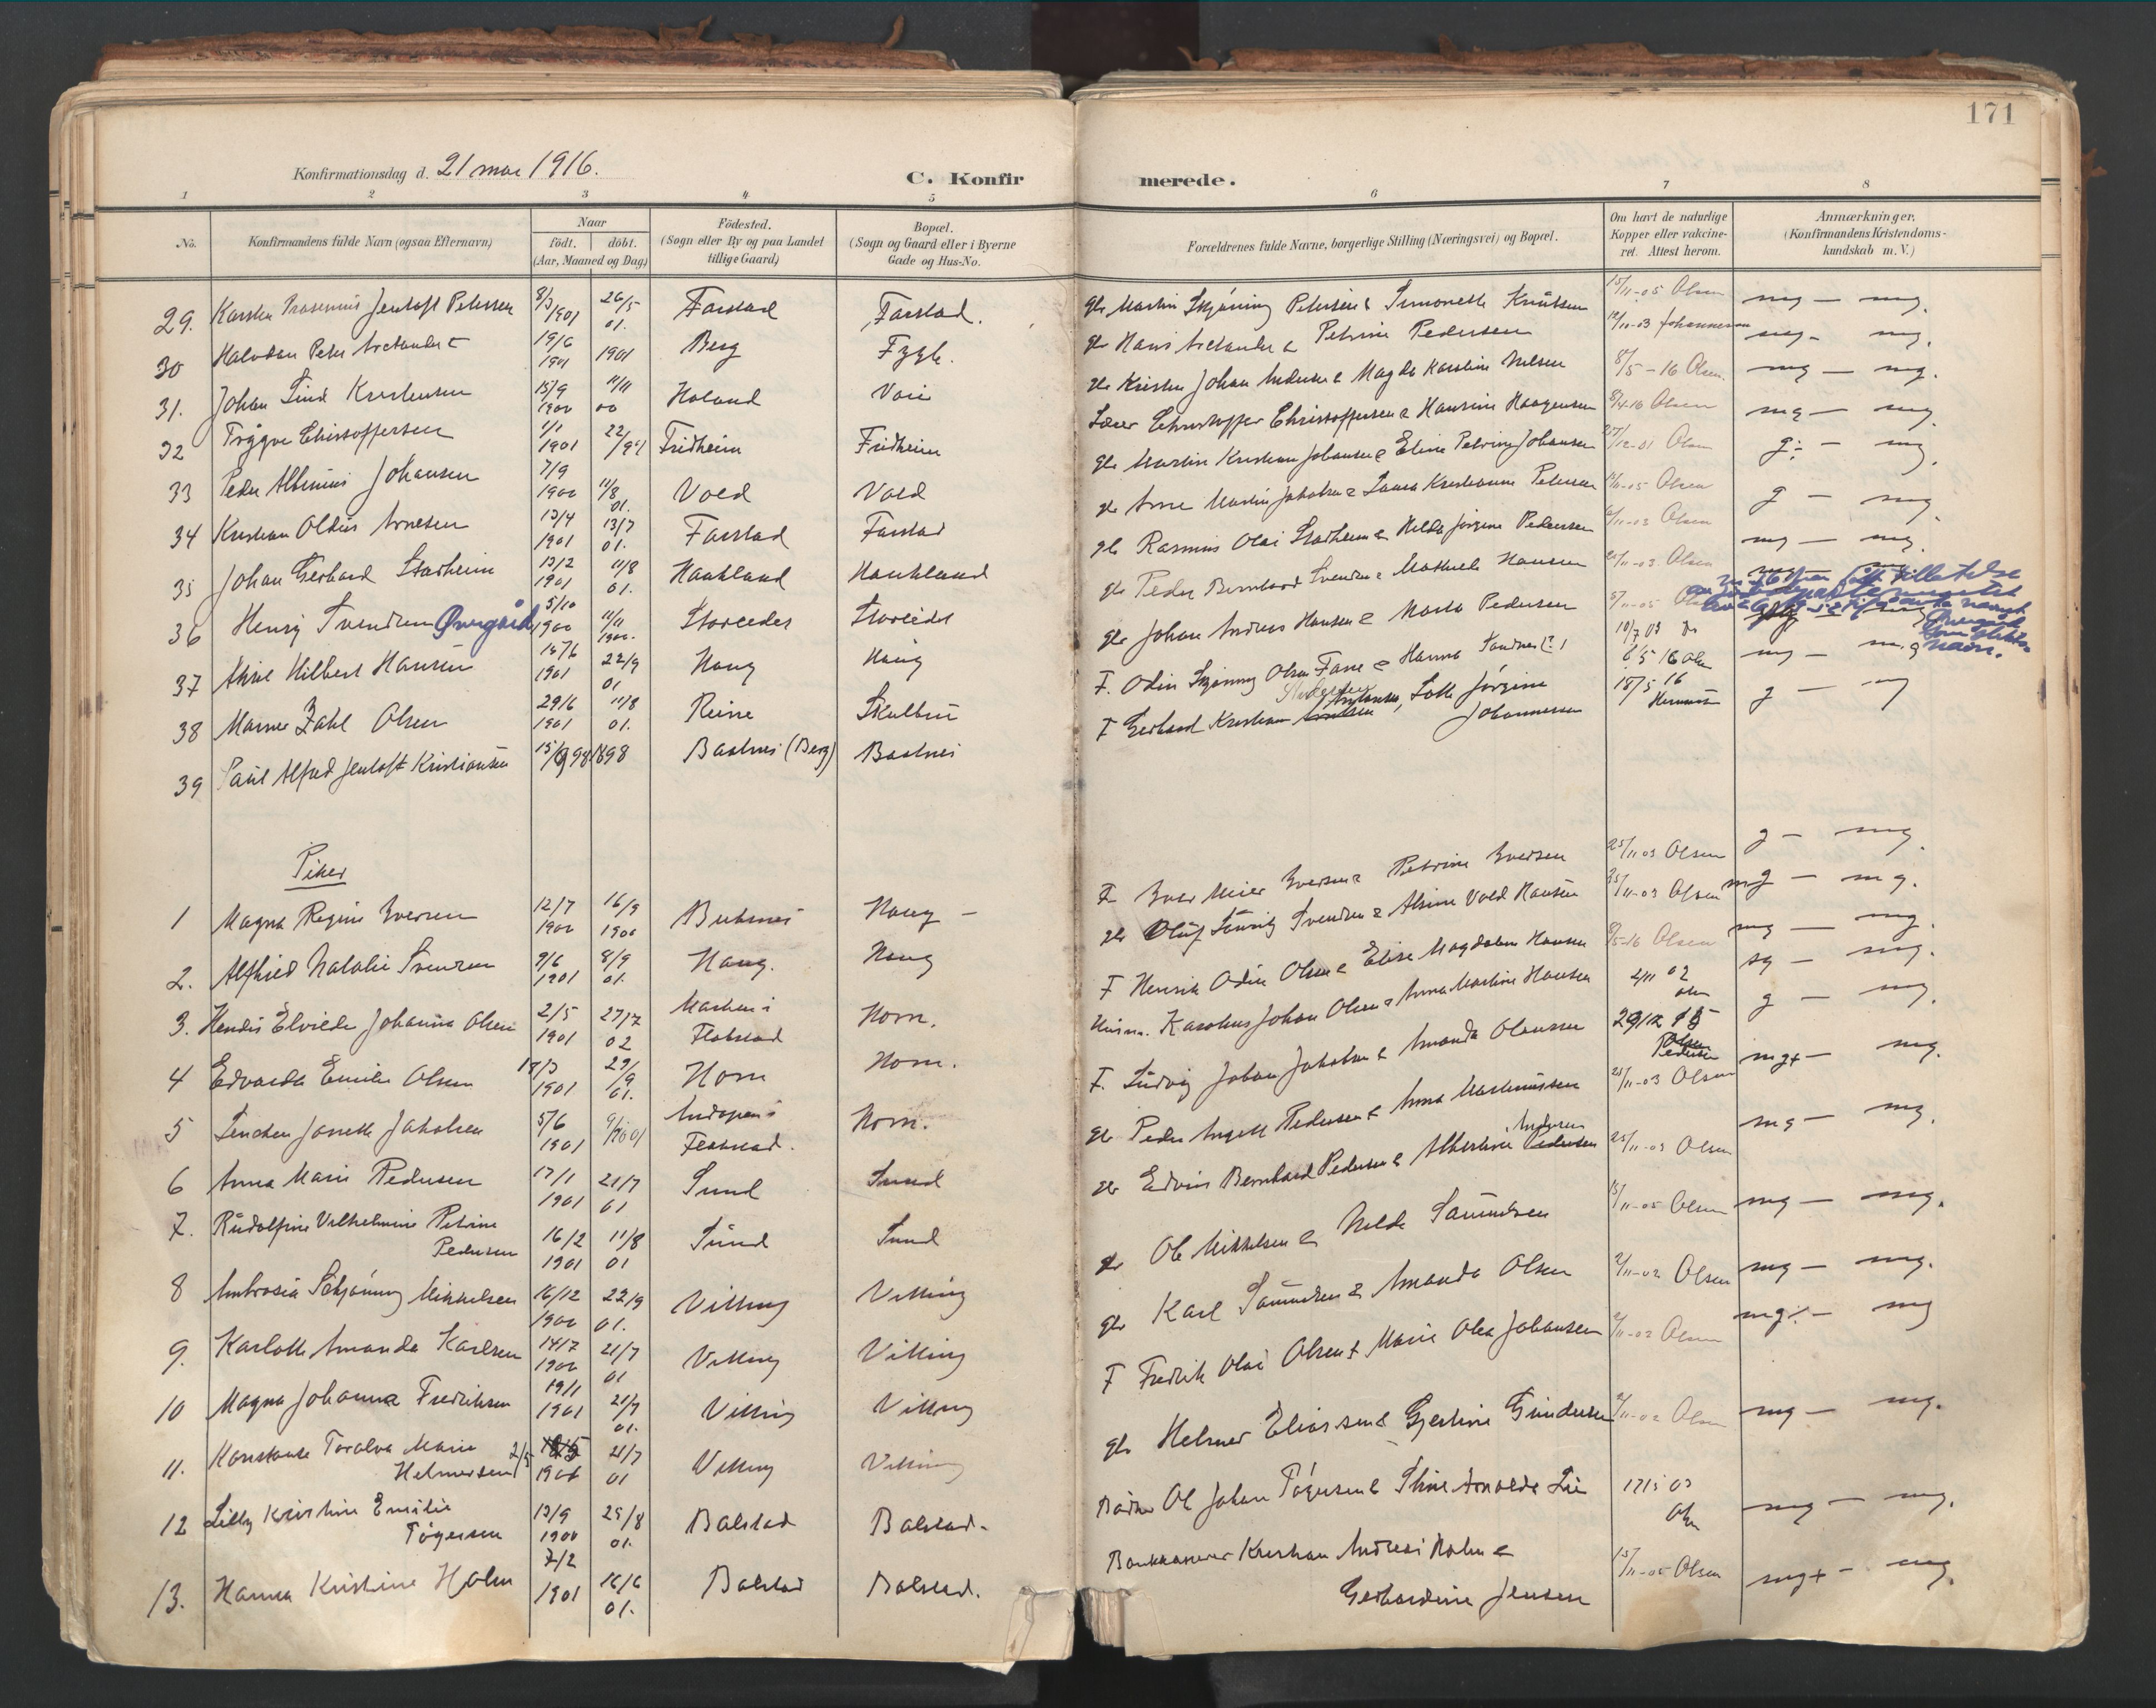 171
Konfirmationsdag d. 21 mai 1916.
C. Konfirmerede.
1 2 3 4 5 6 7 8
No.
Konfirmandens fulde Navn (ogsaa Efternavn)
Naar
födt. döbt.
(Aar, Maaned og Dag)
Födested.
(Sogn eller By og paa Landet
tillige Gaard)
Bopæl.
(Sogn og Gaard eller i Byerne
Gade og Hus-No.
Forældrenes fulde Navne, borgerlige Stilling (Næringsvei) og Bopæl.
Om havt de naturlige
Kopper eller vakcine-
ret. Attest herom.
Anmærkninger.
(Konfirmandens Kristendoms-
kundskab m.V.)
29. Jentoft Petersen 8/3 1901 26/5 01. Farstad Farstad. gbr Martin Skjöning Petersen & Simonette Knutsen 15/11-05 Olsen mg — mg.
30 Halvdan Peder 19/6 1901 1901 Berg Fygle. gbr Hans & Petrine Pedersen 12/11-03 Johannesen mg - mg.
31. Johan Lind Kristensen 15/9 1900 11/11 00 Holand Voie gbr Kristen Johan Andersen & Magda Karoline Nilsen 8/5-16 Olsen mg — mg.
32 Trygve Christoffersen 1/1 1901 Fridheim Fridheim Lærer Christoffer Christoffersen & Hansine Haagensen 8/4 16 Olsen mg — mg
33 Peder Albinius Johansen 7/9 1900 11/8 01. Vold Vold gbr Martin Kristian Johansen & Eline Petrine Johansen Olsen g÷ — mg.
34 Kristian Oldus Arnesen 13/4 1901 13/7 01. Farstad Farstad gbr Arne Martin Jakobsen & Laura Kristianne Petersen Olsen g — mg.
35 Johan Gerhard Starheim 13/2 1901 11/8 01. Haukland Haukland gbr Rasmus Olai Starheim & Hilda Jörgine Pedersen Olsen mg — mg.
36 Henry Svendsen Övergård 5/10 1900 11/11 1900. Storeidet Storeidet gbr Peder Bernhard Svendsen & Mathilde Hansen Olsen
37 Hilbert Hansen 1901 22/9 01 Haug Haug gbr Johan Andreas Hansen & Marta Pedersen
38 Marner Zahl Olsen 29/6 1901 11/8 01. Reine Skulbru F. Odin Skjöning Olsen Farre & Hanna Sandnes (?) 6/5 16 Olsen mg — mg
39 Paul Alfred Jentoft Kristiansen 1898 Bastnes (Berg) Bastnes F Gerhard Kristian Antonsen, Lotte Jörgine Johannessen 18/5 16 g — mg
Piker
1 Magna Regine Iversen 12/7 1900 16/9 1900 Buksnes Haug — F Ivar Meier Iversen & Petrine Iversen 25/11 03 Olsen g — mg.
2. Alfhild Natalie Svendsen 9/6 1901 8/9 01. Haug. Haug gbr Oluf Lauritz Svendsen & Alvine Vold Hansen 25/11-03 Olsen mg — mg.
3. Hendis Elvide Johanna Olsen 2/5 1901 27/7 02 Flakstad Horn. F Henrik Odin Olsen & Elise Magdalena Hansen 8/5-16 Olsen mg — mg.
4 Edvarda Emilie Olsen 18/3 1901 29/9 01. Horn Horn. Husm. Karolius Johan Olsen & Anna Martine Hansen 2/11 02 Olsen sg — mg.
5 Lenchen Janette Jakobsen 5/6 1901 Flakstad. Horn. F. Ludvig Johan Jakobsen & Amanda Olaussen 29/12 15 Pedersen g — mg.
6 Anna Marie Pedersen 17/1 1901 21/7 01 Sund Sund gbr Peder Angell Pedersen & Anna Martinussen 25/11-03 Olsen mg+ — mg.
7. Rudolfine Vilhelmine Petrine
Pedersen 16/2 1901 11/8 01 Sund Sund gbr Edvin Bernhard Pedersen & Albertine Pedersen Andersen 25/11-03 Olsen mg — mg.
8 Ambrosia Schjönning Mikkelsen 16/12 1900 22/9 01. Vikting Vikting gbr Ole Mikkelsen & Hilda Samuelsen 15/11-05 Olsen mg — mg.
9. Karlotte Amanda Karlsen 14/7 1900 21/7 01 Vikting Vikting gbr Karl Samuelsen & Amanda Olsen 2/11-02 Olsen mg — mg.
10 Magna Johanna Fredriksen 19/1 1901 21/7 01. Vikting Vikting F Fredrik Olai Olsen & Marie Olea Johansen 2/11-02 Olsen mg÷ — mg
11. Konstanse Toralva Marie
Helmersen 2/5 1901 21/7 01 Vikting Vikting gbr Helmer Eliassen & Gjertine Gundersen 2/11-02 Olsen mg — mg.
12 Lilly Kristine Emilie
Tögersen 13/9 1900 25/8 01. Balstad Balstad. Ole Johan Tögersen & Arnolda Lie 17/5 03 Olsen mg — mg.
13. Hanna Kristine Holm 7/2 1901 16/6 01. Balstad Balstad. Bankkasserer Kristian Andreas Holm &
Gerhardine Jensen 15/11-05 Olsen mg+ — mg.